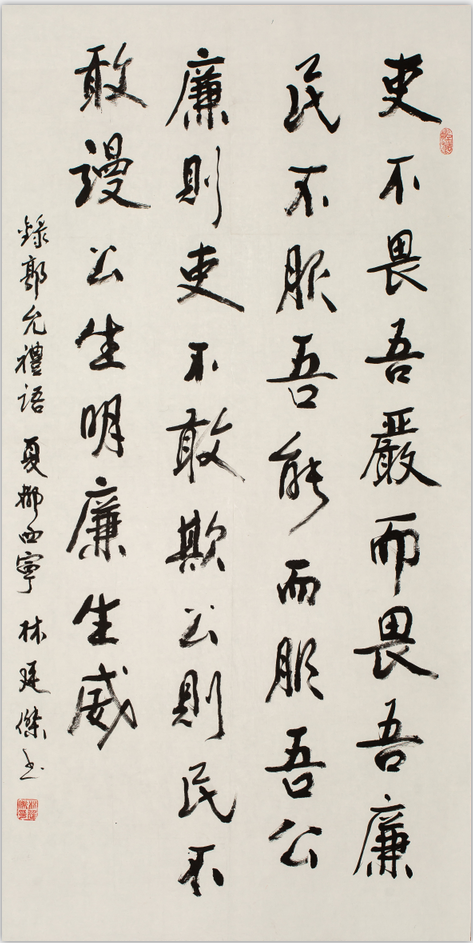 吏不畏吾嚴而畏吾廉
民不服吾能而服吾公
廉則吏不敢欺公則民不
敢謾公生明廉生威
錄郭允禮語 夏都西寧 林廷傑书